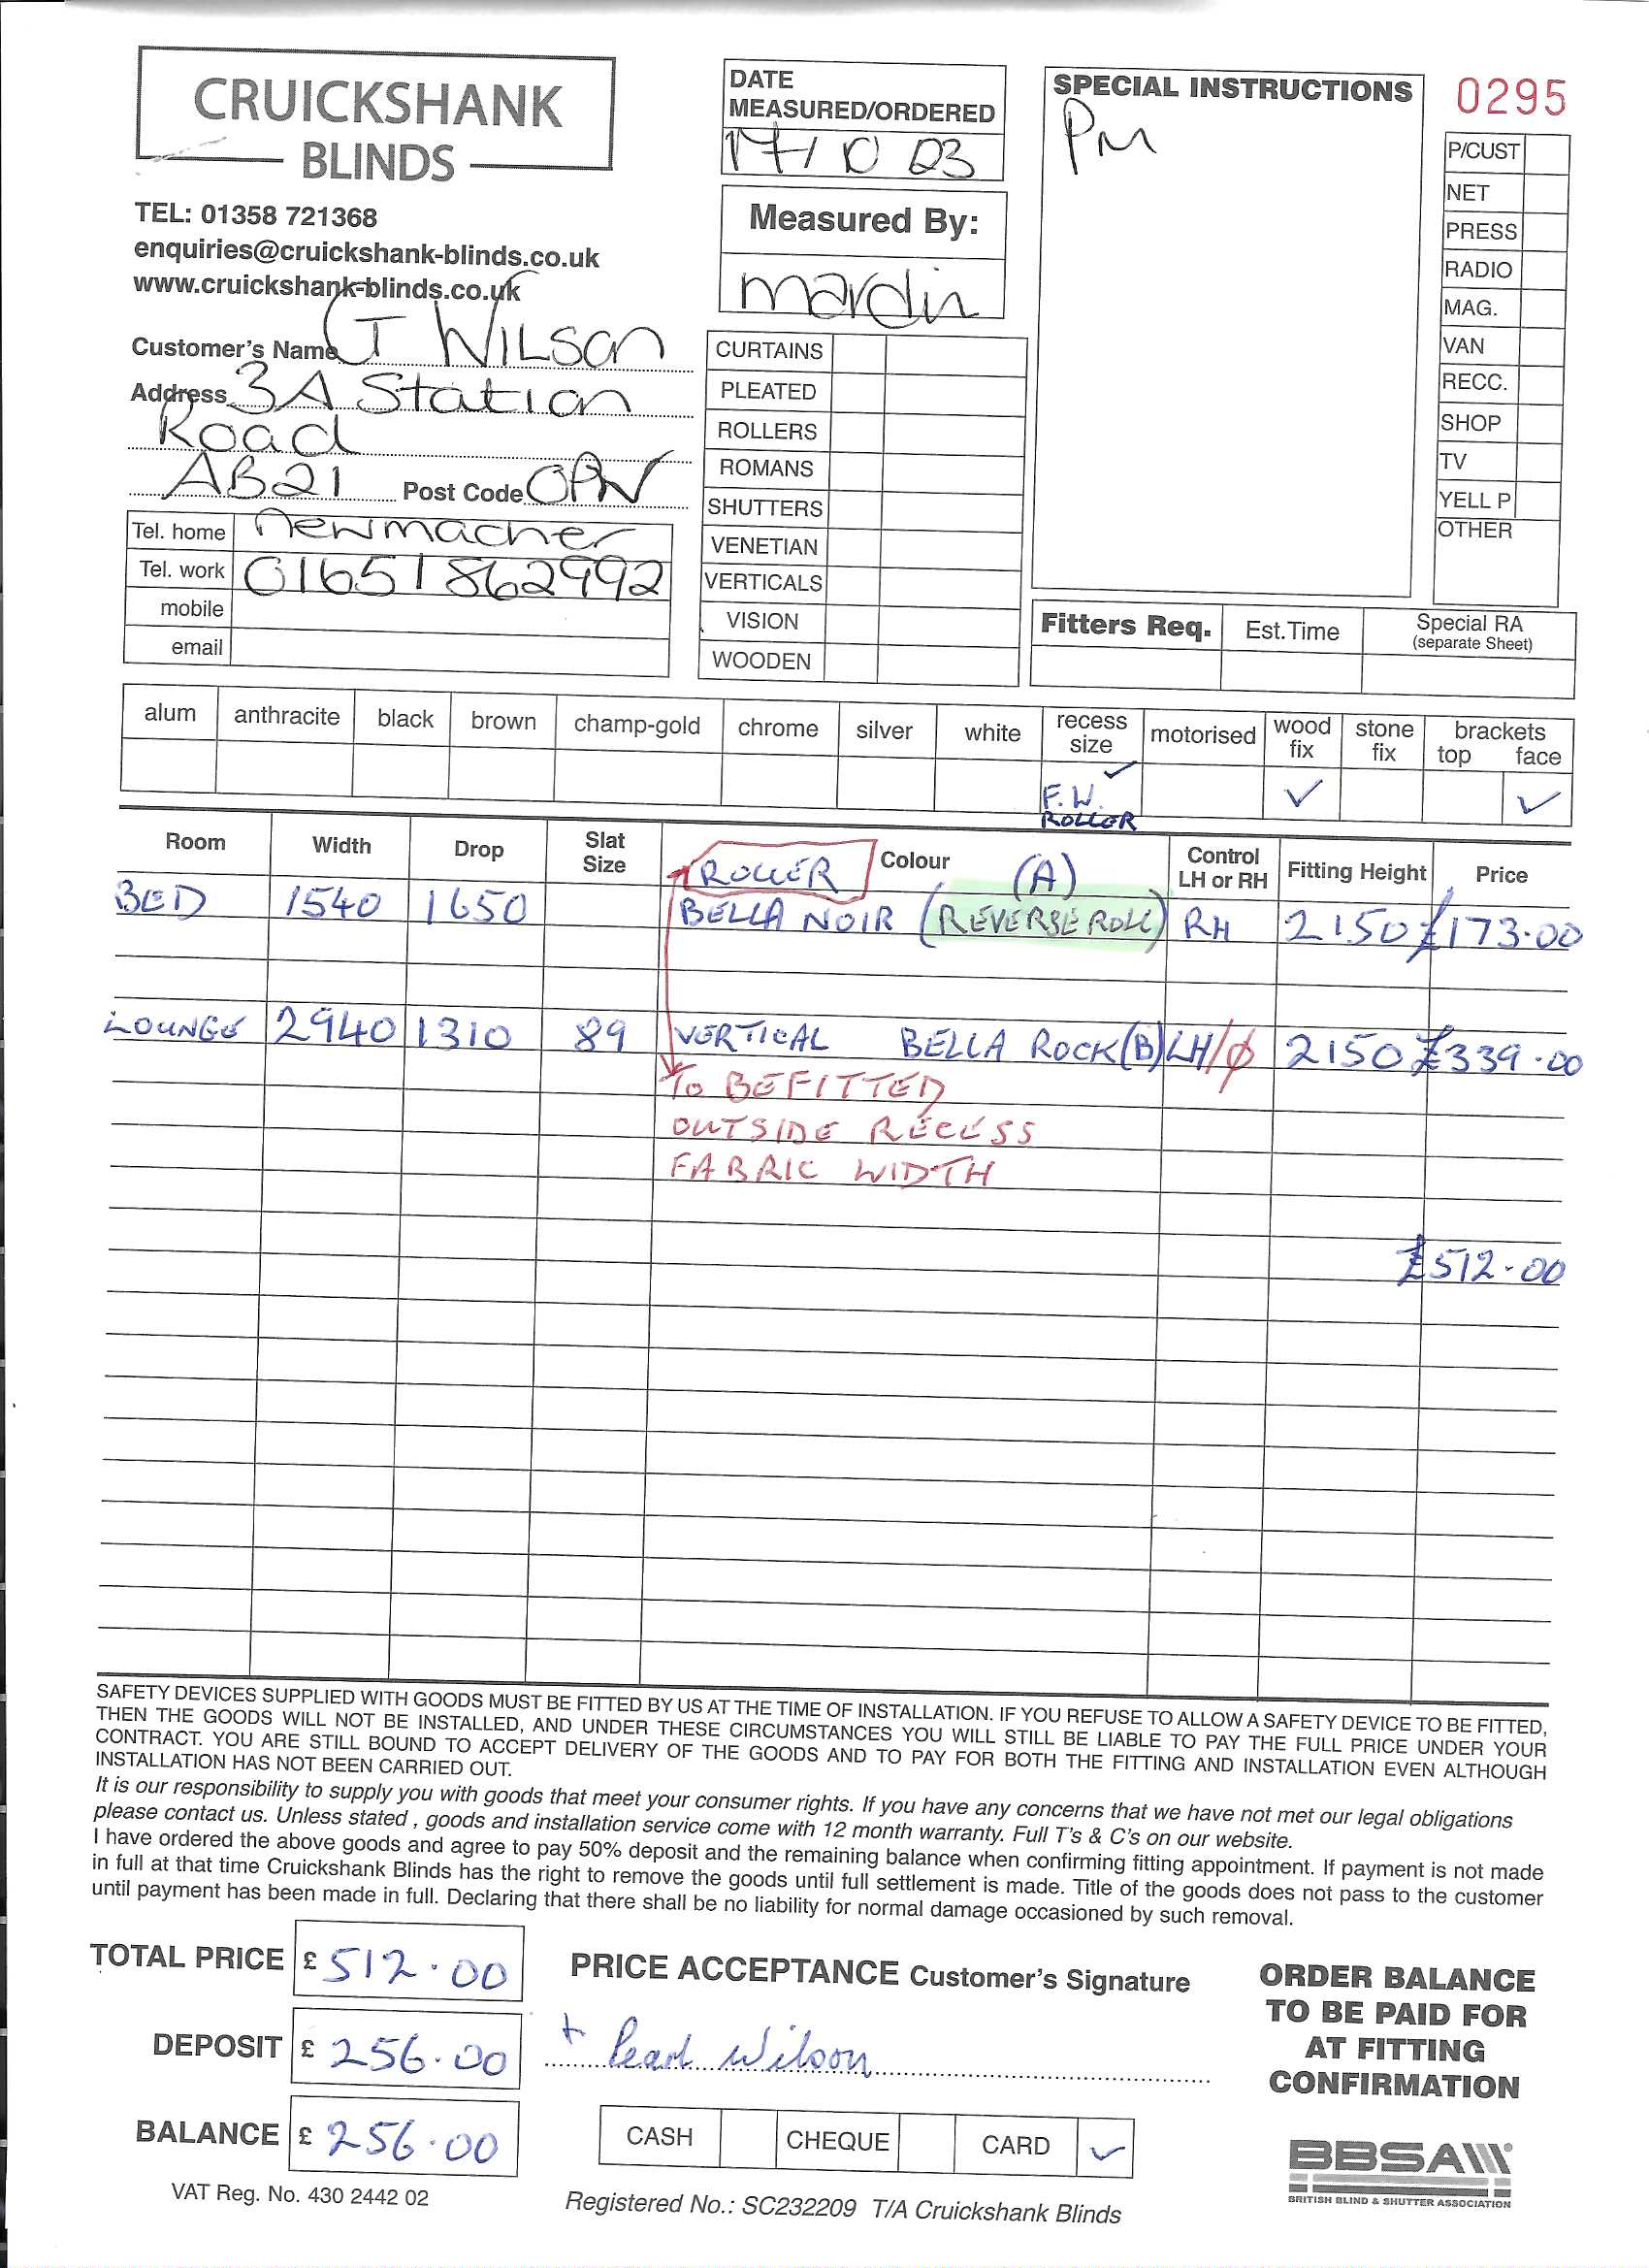 CRUICKSHANK
BLINDS
TEL: 01358 721368
enquiries@cruickshank-blinds.co.uk
www.cruickshank-blinds.co.uk
Customer's Name G Wilson
Address 3A Station
Road
AB21 Post Code
Tel. home Newmacher
Tel. work 01651 862992
mobile
email
DATE
MEASURED/ORDERED
17/10 23
Measured By:
CURTAINS
PLEATED
ROLLERS
ROMANS
SHUTTERS
VENETIAN
VERTICALS
VISION
WOODEN
SPECIAL INSTRUCTIONS
Pm
0295
P/CUST
NET
PRESS
RADIO
MAG.
VAN
RECC.
SHOP
TV
YELL P
OTHER
Fitters Req. Est.Time Special RA
(separate Sheet)
alum anthracite black brown champ-gold chrome silver white recess size motorised wood fix stone fix brackets top face
✓ F.W. ROLLER ✓ ✓
Room Width Drop Slat Size Colour Control LH or RH Fitting Height Price
ROLLER (A)
BED 1540 1650 BELLA NOIR (REVERSE ROLL) RH 2150 £173.00
LOUNGE 2940 1310 89 VERTICAL BELLA ROCK (B) LH/ø 2150 £339.00
TO BE FITTED
OUTSIDE RECESS
FABRIC WIDTH
£512.00
SAFETY DEVICES SUPPLIED WITH GOODS MUST BE FITTED BY US AT THE TIME OF INSTALLATION. IF YOU REFUSE TO ALLOW A SAFETY DEVICE TO BE FITTED,
THEN THE GOODS WILL NOT BE INSTALLED, AND UNDER THESE CIRCUMSTANCES YOU WILL STILL BE LIABLE TO PAY THE FULL PRICE UNDER YOUR
CONTRACT. YOU ARE STILL BOUND TO ACCEPT DELIVERY OF THE GOODS AND TO PAY FOR BOTH THE FITTING AND INSTALLATION EVEN ALTHOUGH
INSTALLATION HAS NOT BEEN CARRIED OUT.
It is our responsibility to supply you with goods that meet your consumer rights. If you have any concerns that we have not met our legal obligations
please contact us. Unless stated , goods and installation service come with 12 month warranty. Full T's & C's on our website.
I have ordered the above goods and agree to pay 50% deposit and the remaining balance when confirming fitting appointment. If payment is not made
in full at that time Cruickshank Blinds has the right to remove the goods until full settlement is made. Title of the goods does not pass to the customer
until payment has been made in full. Declaring that there shall be no liability for normal damage occasioned by such removal.
TOTAL PRICE £ 512.00
DEPOSIT £ 256.00
BALANCE £ 256.00
VAT Reg. No. 430 2442 02
PRICE ACCEPTANCE Customer's Signature
+ Pearl Wilson
CASH CHEQUE CARD ✓
Registered No.: SC232209 T/A Cruickshank Blinds
ORDER BALANCE
TO BE PAID FOR
AT FITTING
CONFIRMATION
BBSA
BRITISH BLIND & SHUTTER ASSOCIATION